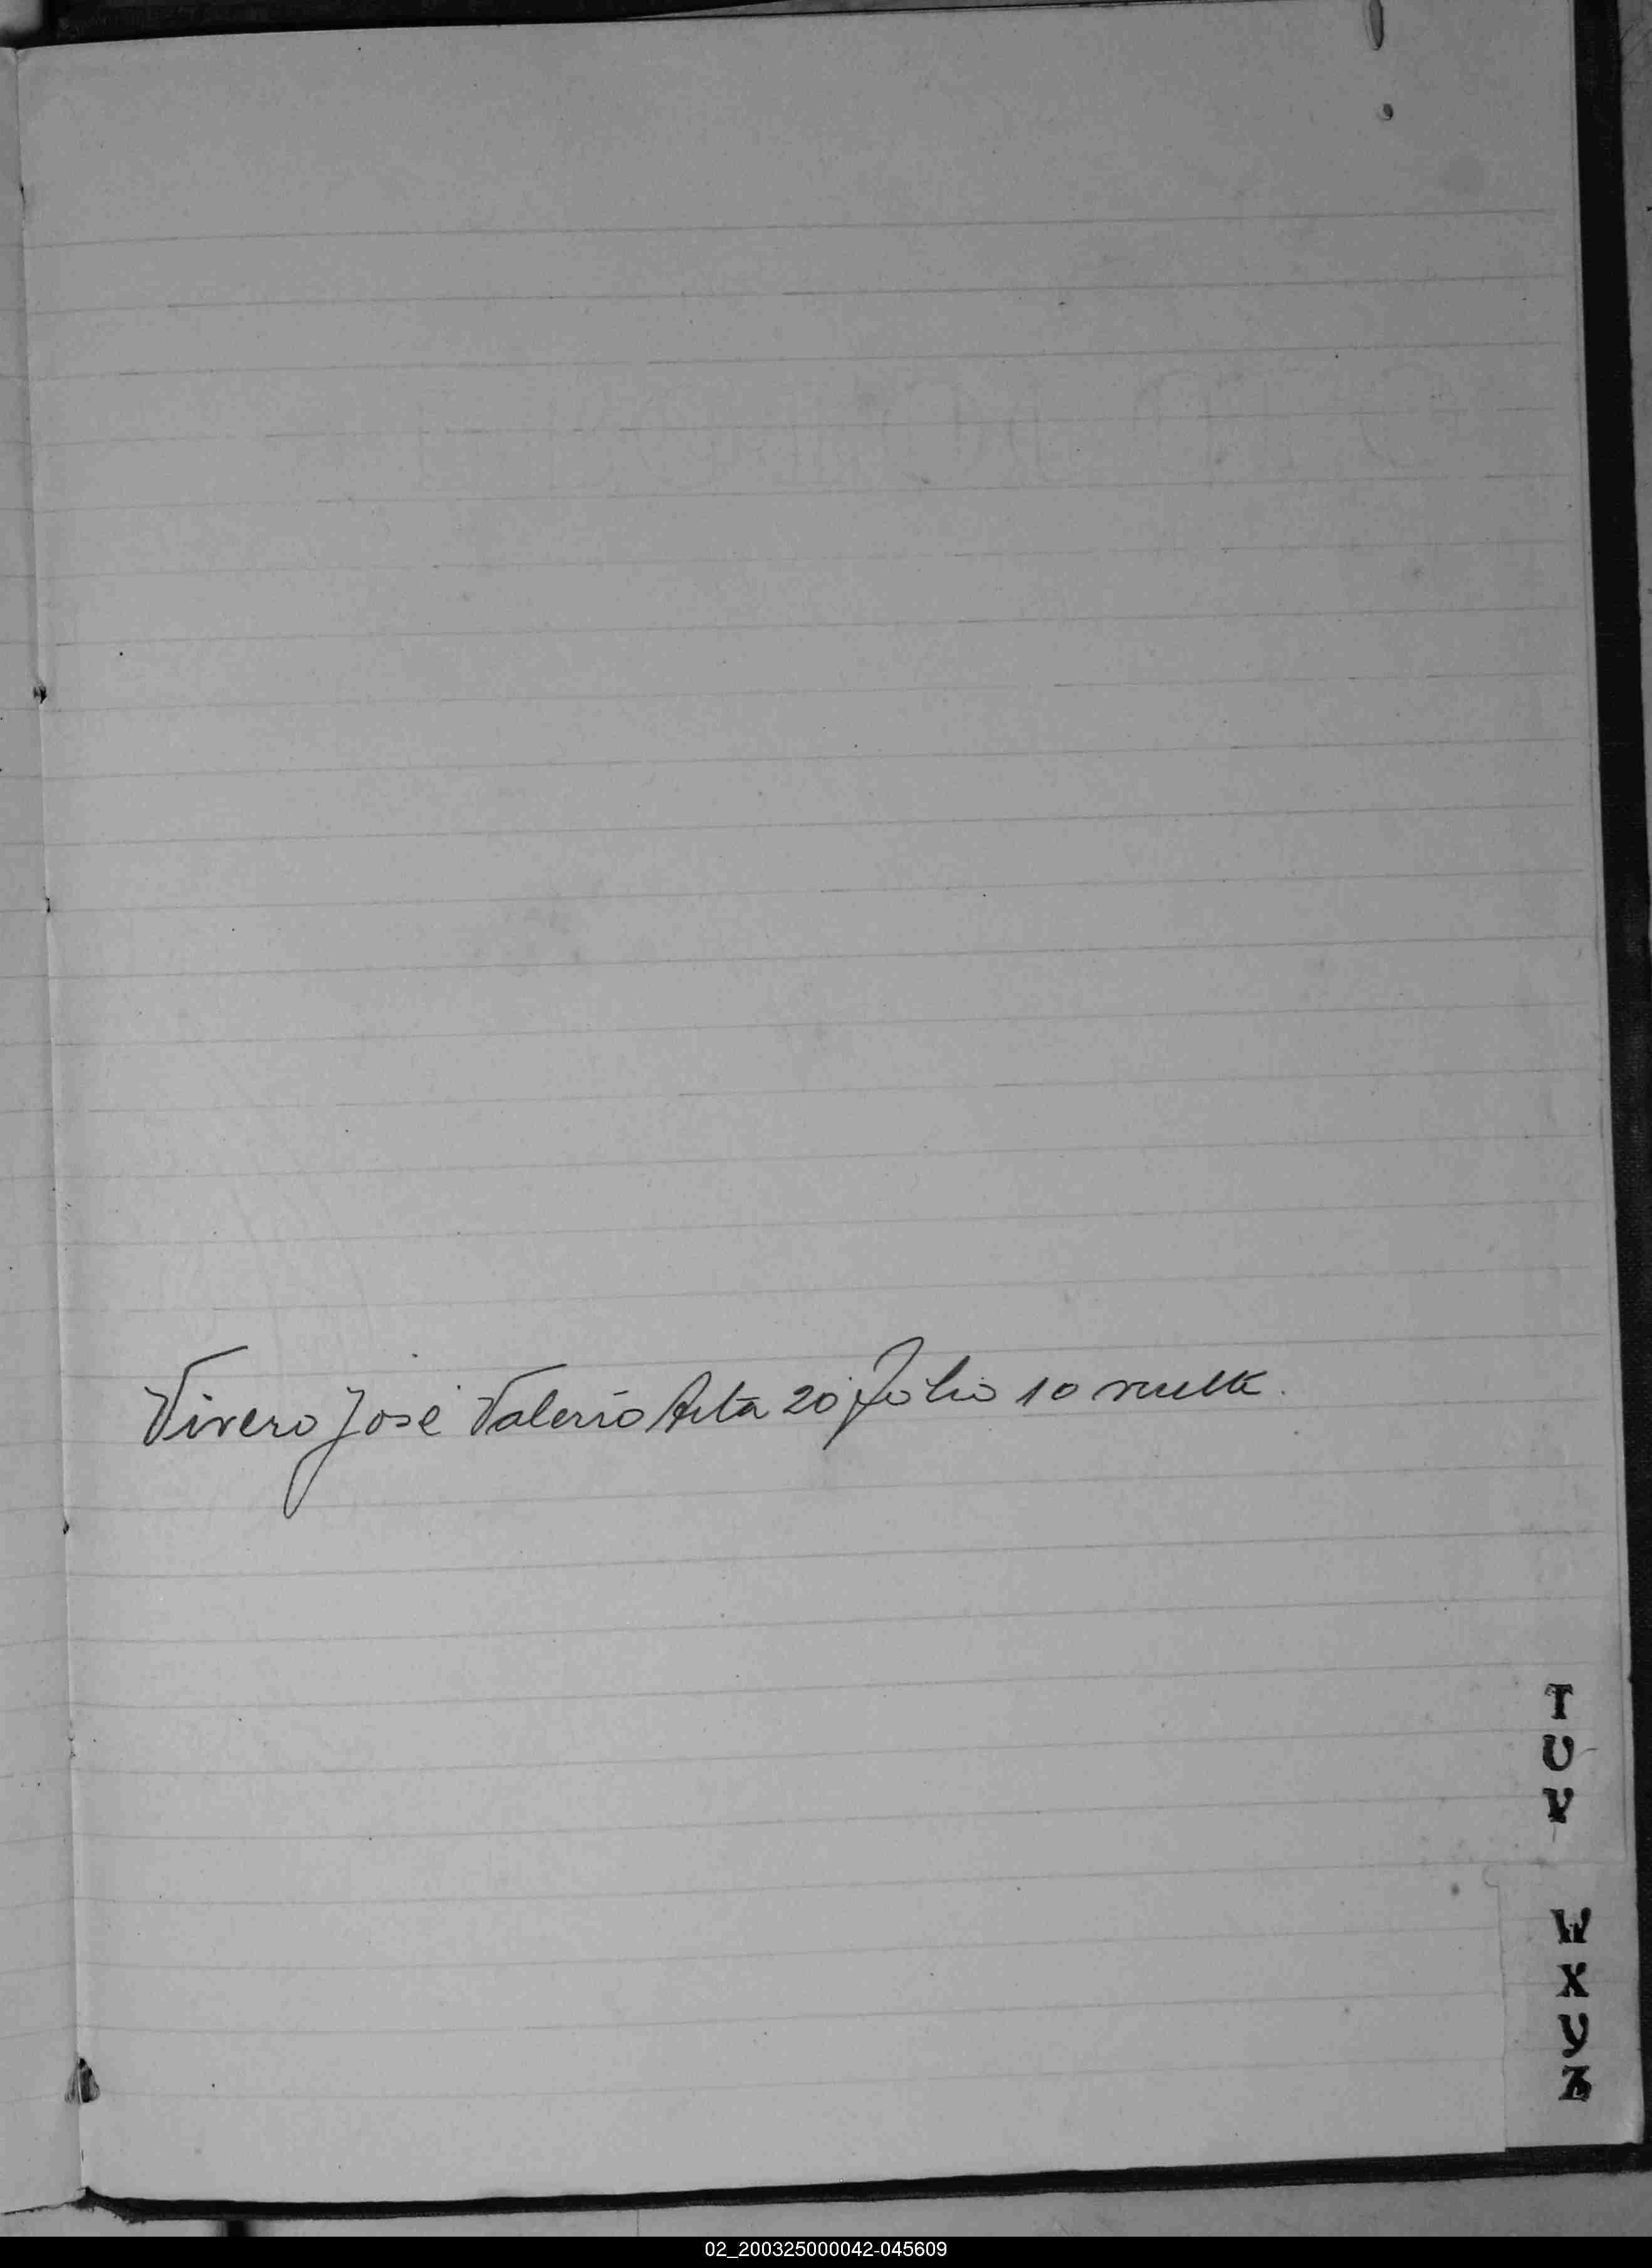 Vivero José Valerio Acta 20 folio 10 vuelta.
T
U
V
W
X
Y
Z
02_200325000042-045609